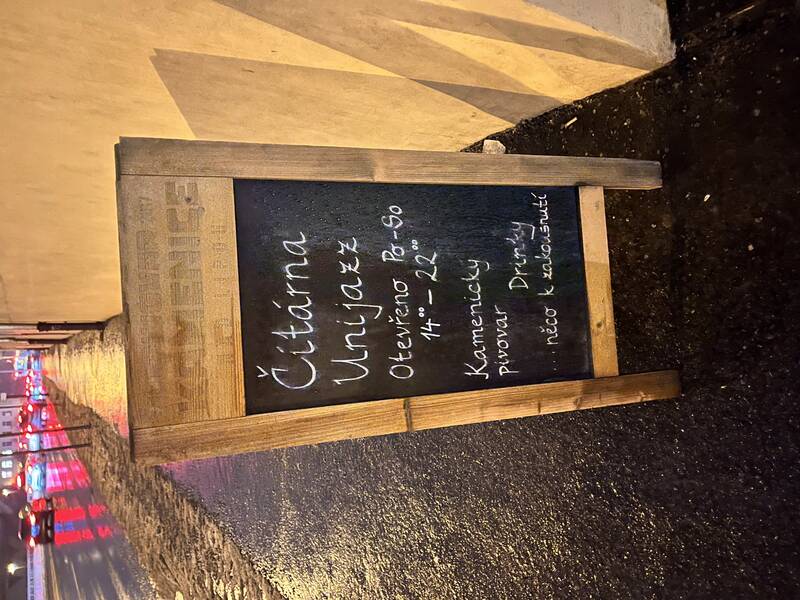 PIVOVAR
KAMENICE
NAD LIPOU
Čítárna
Unijazz
Otevřeno Po-So
14⁰⁰ – 22⁰⁰
Kamenicky
pivovar
Drinky
... něco k zakousnutí